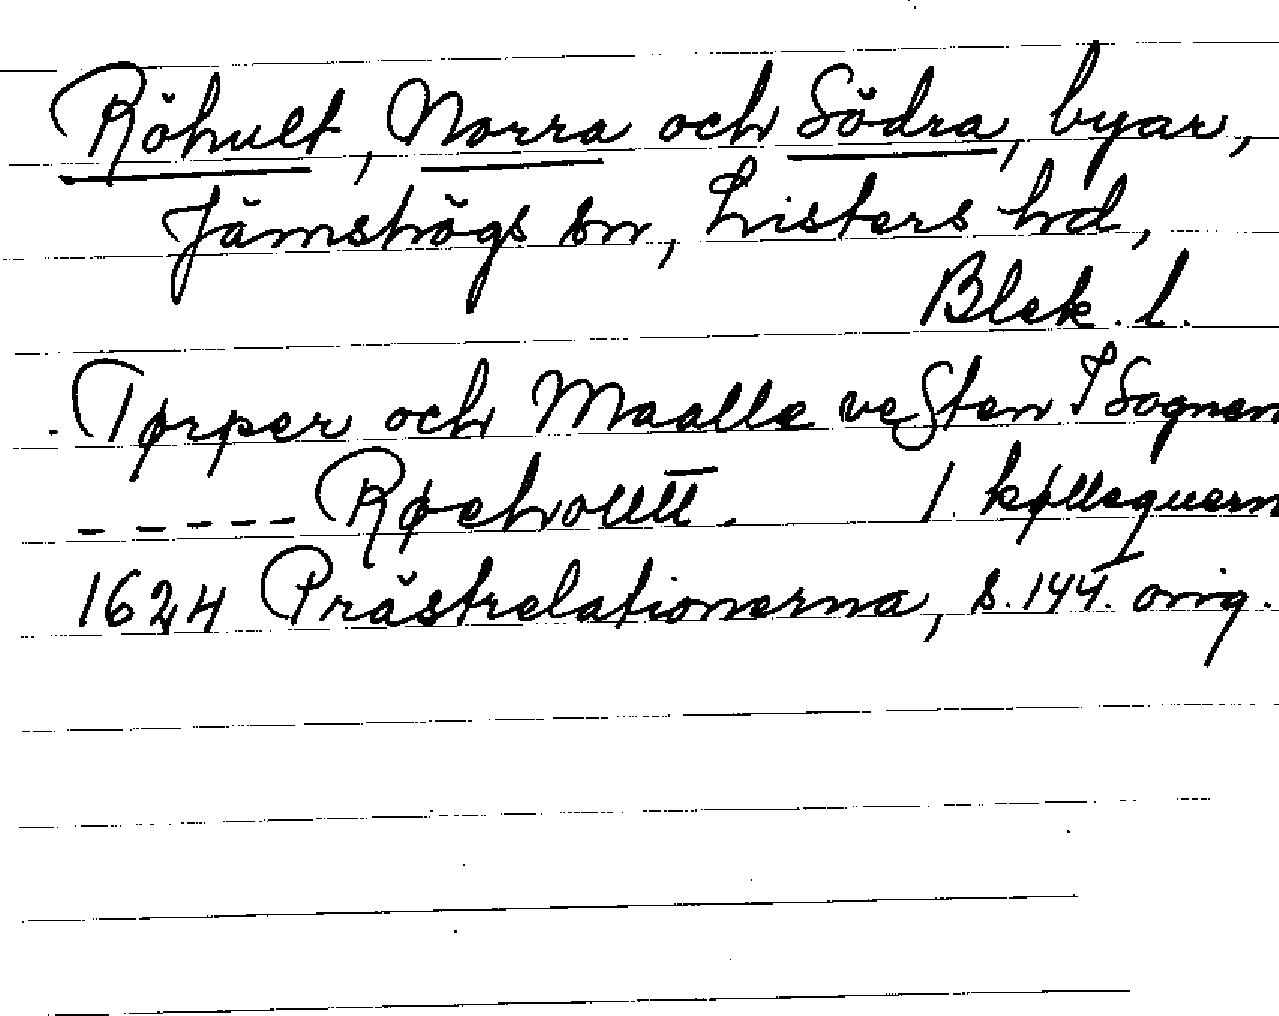 Röhult, Norra och Södra, byar,
Jämshögs sn, Listers hd,
Blek. l.
Tørper och Maalle vesten I Sognen
- - - - - Røehoultt. 1. køllequern
1624 Prästrelationerna, s. 144. orig.